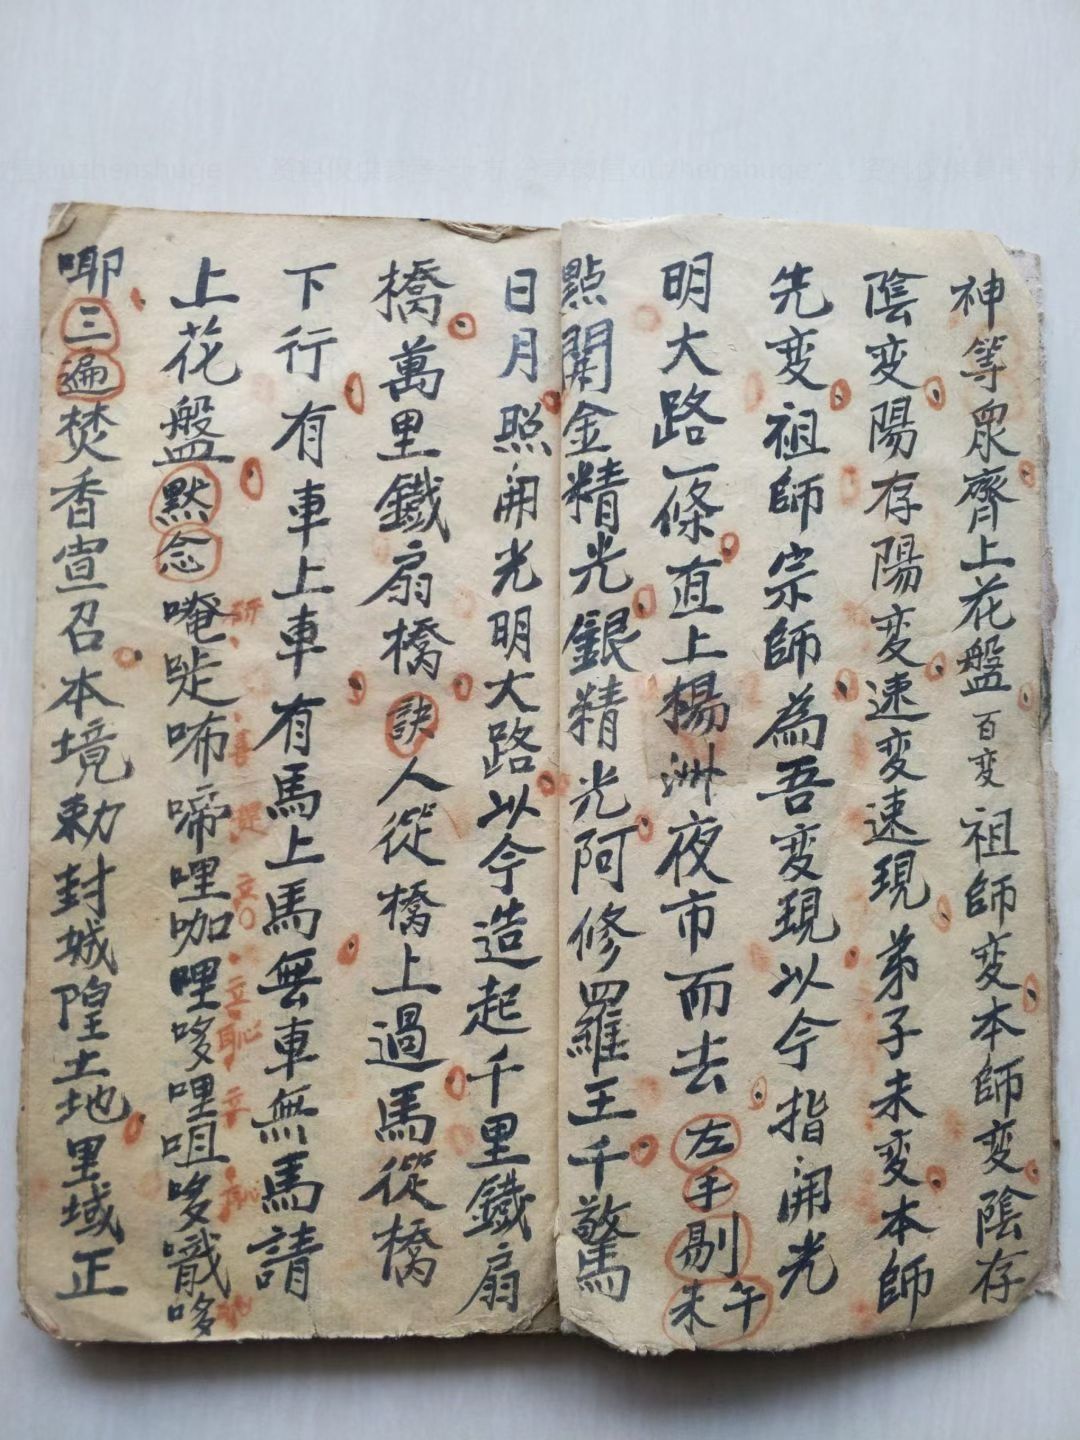 神等眾齊上花盤百变祖師变本師变陰存
陰变陽存陽变速变速現弟子未变本師
先变祖師宗師為吾变現以今指開光
明大路一條直上楊洲夜市而去左手剔午未
點開金精光銀精光阿修羅王千驚
日月照開光明大路以今造起千里鐵扇
橋萬里鐵扇橋訣人從橋上過馬從橋
下行有車上車有馬上馬無車無馬請
上花盤默念唵哫咘啼哩咖哩哆哩咀哆嚱哆
唧三遍焚香宣召本境勅封城隍土地里域正